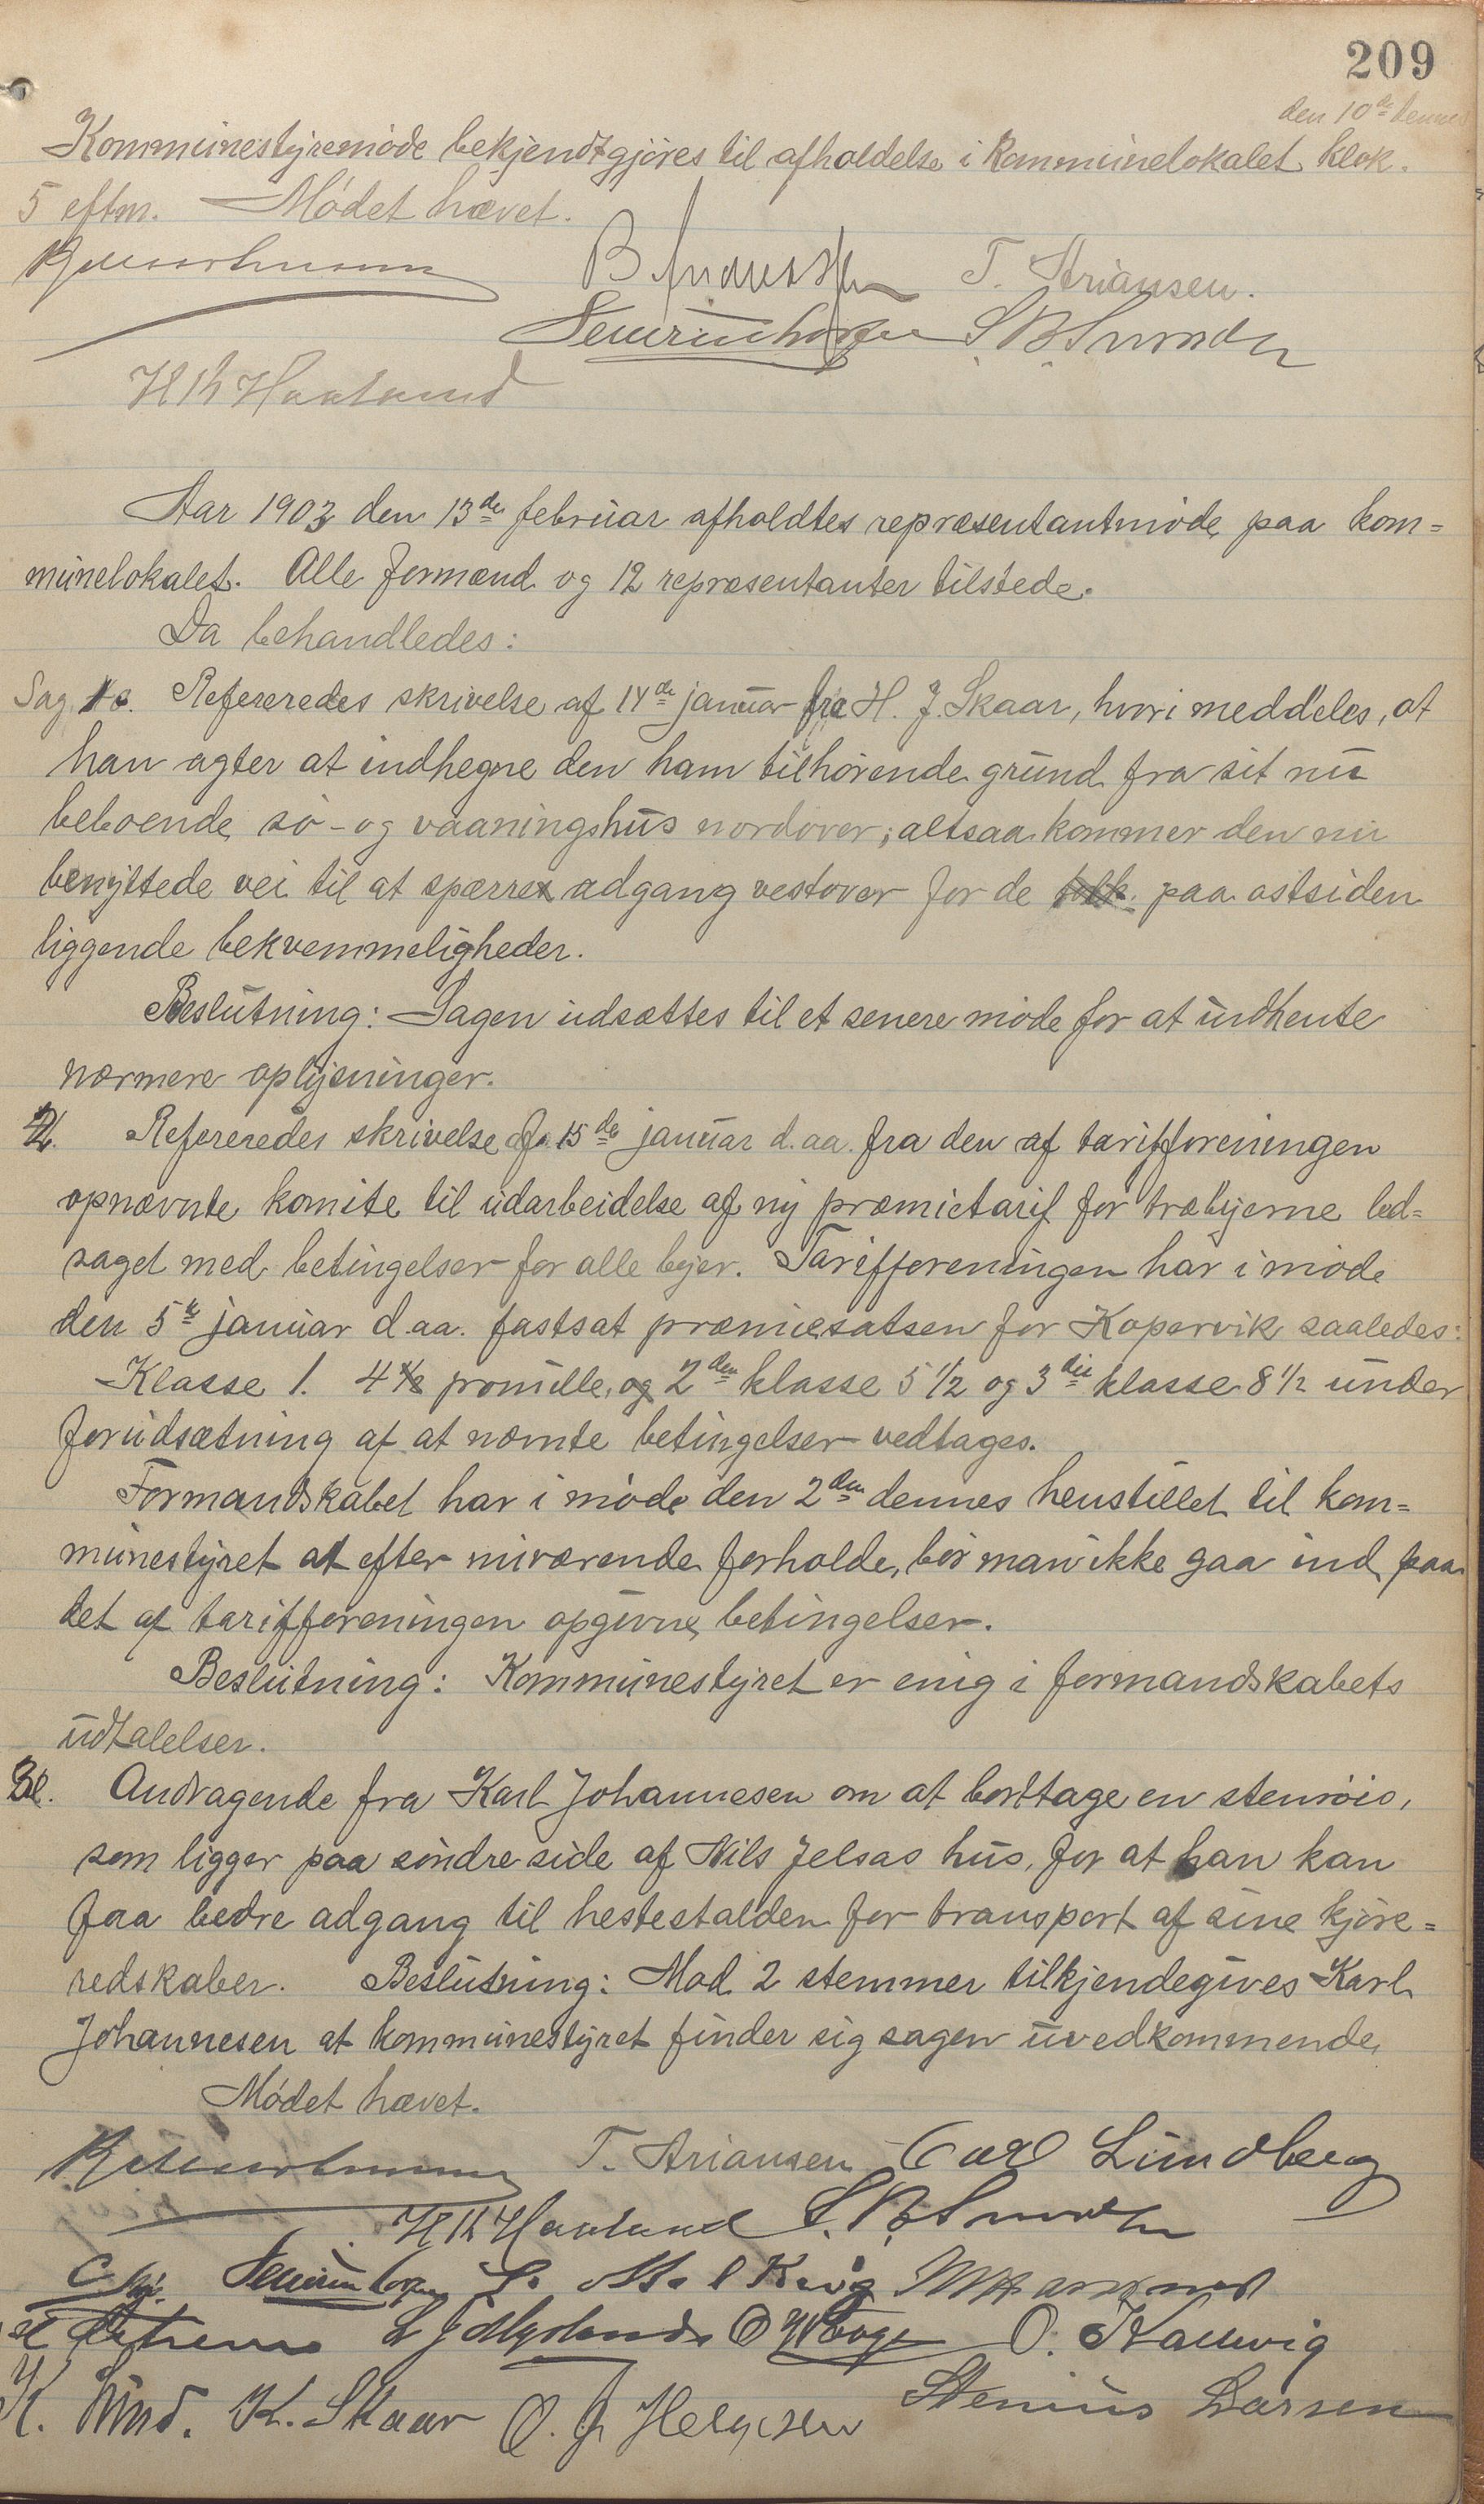 209
den 10de dennes
Kommunestyremøde bekjendtgjøres til afholdelse i kommunelokalet klok.
5 eftm. Mødet hævet.
T. Ariansen.
H Th Haaland
Aar 1903 den 13de februar afholdtes repræsentantmøde paa kom=
munelokalet. Alle formænd og 12 repræsentanter tilstede.
Da behandledes:
Sag 1. Refereredes skrivelse af 14de januar fra H. J. Skaar, hvori meddeles, at
han agter at indhegne den ham tilhørende grund fra sit nu
beboende sø- og vaaningshus nordover; altsaa kommer den nu
benyttede vei til at spærre adgang vestover for de paa østsiden
liggende bekvemmeligheder.
Beslutning: Sagen udsættes til et senere møde for at indhente
nærmere oplysninger.
2. Refereredes skrivelse af 15de januar d. aa. fra den af tarifforeningen
opnævnte komite til udarbeidelse af ny præmietarif for træbyerne led=
saget med betingelser for alle byer. Tarifforeningen har i møde
den 5te januar d. aa. fastsat præmiesatsen for Kopervik saaledes:
Klasse 1. 4 promille, og 2den klasse 5 1/2 og 3die klasse 8 1/2 under
forudsætning af at nævnte betingelser vedtages.
Formandskabet har i møde den 2den dennes henstillet til kom=
munestyret at efter nuværende forholde, bør man ikke gaa ind paa
det af tarifforeningen opgivne betingelser.
Beslutning: Kommunestyret er enig i formandskabets
udtalelser.
3. Andragende fra Karl Johannesen om at borttage en stenrøis,
som ligger paa søndre side af Nils Jelsas hus, for at han kan
faa bedre adgang til hestestalden for transport af sine kjøre=
redskaber. Beslutning: Mod 2 stemmer tilkjendegives Karl
Johannesen at kommunestyret finder sig sagen uvedkommende
Mødet hævet.
T. Ariansen Carl Lundberg
H Th Haaland
O. Kallevig
K. Lund. K. Skaar O. J. Helgesen Stenius Larsen